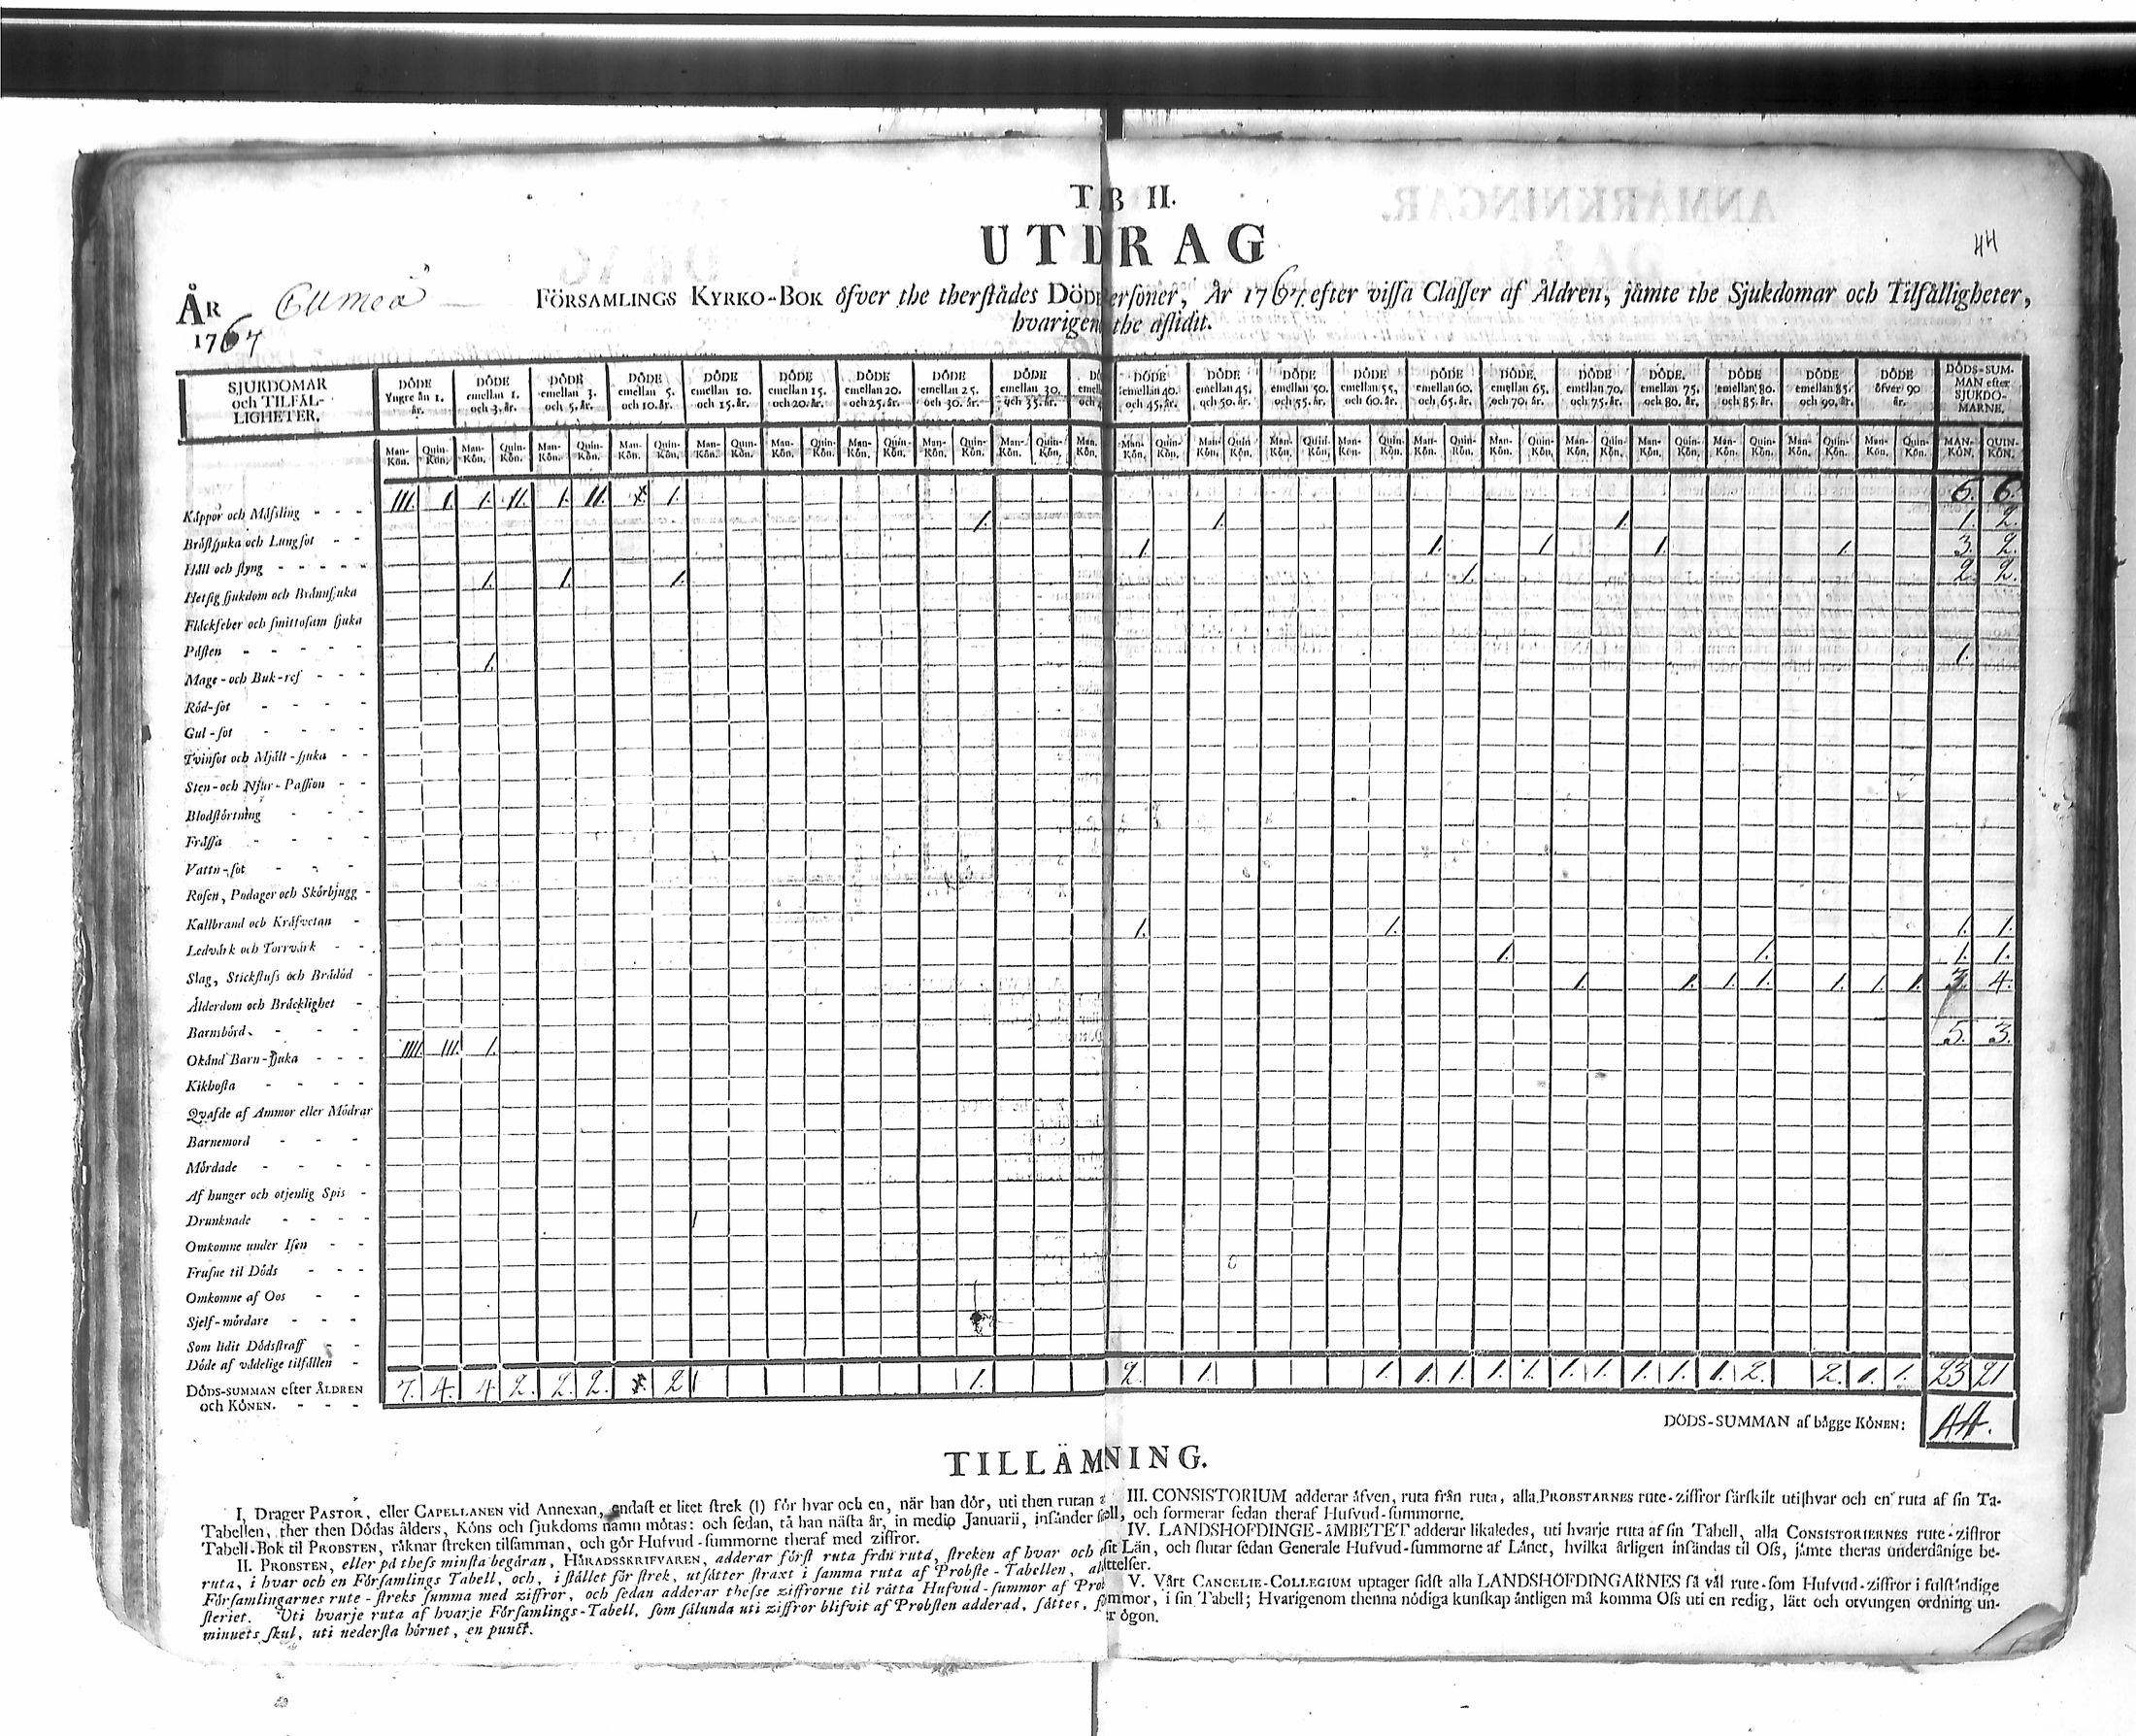 TAB II.
UTDRAG
44
ÅR 1767 Förslamlings Kyrko-Bok öfver the therstådes Döde Personer, År 1767 efter vissa Classer af Åldren, jämte the Sjukdomar och Tilfälligheter,
hvarigen the aflidit.
SJUKDOMAR och TILFÄL-LIGHETER. DÖDE Yngre än 1. år. DÖDE emellan 1. och 3. år. DÖDE emellan 3. och 5. år. DÖDE emellan 5. och 10. år. DÖDE emellan 10. och 15. år. DÖDE emellan 15. och 20. år. DÖDE emellan 20. och 25. år. DÖDE emellan 25. och 30. år. DÖDE emellan 30. och 35. år. DÖDE emellan 40. och 45. år. DÖDE emellan 45. och 50. år. DÖDE emellan 50. och 55. år. DÖDE emellan 55. och 60. år. DÖDE emellan 60. och 65. år. DÖDE emellan 65. och 70. år. DÖDE emellan 70. och 75. år. DÖDE emellan 75. och 80. år. DÖDE emellan 80. och 85. år. DÖDE emellan 85. och 90. år. DÖDE öfver 90 år. DÖDS-SUM-MAN efter SJUKDO-MARNE.
Man-Kön. Quin-Kön. Man-Kön. Quin-Kön. Man-Kön. Quin-Kön. Man-Kön. Quin-Kön. Man-Kön. Quin-Kön. Man-Kön. Quin-Kön. Man-Kön. Quin-Kön. Man-Kön. Quin-Kön. Man-Kön. Quin-Kön. Man-Kön. Man-Kön. Quin-Kön. Man-Kön. Quin-Kön. Man-Kön. Quin-Kön. Man-Kön. Quin-Kön. Man-Kön. Quin-Kön. Man-Kön. Quin-Kön. Man-Kön. Quin-Kön. Man-Kön. Quin-Kön. Man-Kön. Quin-Kön. Man-Kön. Quin-Kön. Man-Kön. Quin-Kön. MAN-KÖN. QUIN-KÖN.
Kåppor och Måsling III. I. I. II. I. II. I. I. 6. 6.
Bröstsjuka och Lungsot 1. 1. 1. 1. 2.
Håll och styng 1. 1. 1 1. 1. 3. 2.
Hetsig sjukdom och Brännsjuka 1. 1. 1. 1. 2. 2.
Fläckfeber och smittosam sjuka
Pästen
Mage-och Buk-ref 1. 1.
Röd-sot
Gul-sot
Tvinsot och Mjält-sjuka
Sten-och Njur-Passion
Blodstörtning
Frässa
Vattu-sot
Rosen, Podager och Skörbjugg
Kallbrand och Kräfvetan
Ledvärk och Torrvärk 1. 1. 1. 1.
Slag, Stickfluss och Brådöd 1. 1. 1. 1.
Ålderdom och Bräcklighet 1. 1. 1. 1. 1. 1. 1. 3. 4.
Barnsbörd
Okänd Barn-sjuka IIII. III. I. 5. 3.
Kikhosta
Qvafde af Ammor eller Mödrar
Barnemord
Mördade
Af hunger och otjenlig Spis
Drunknade
Omkomne under Isen
Frusne til Döds
Omkomne af Oos
Sjelf-mördare
Som lidit Dödsstraff
Döde af vådelige tilfällen
DÖDS-SUMMAN efter ÅLDREN och KÖNEN. 7. 4. 4. 2. 2. 2. 1. 2 1. 2. 1. 1. 1. 1. 1. 1. 1. 1. 1. 1. 1. 2. 2. 1. 1. 23 21
DÖDS-SUMMAN af bägge KÖNEN: 44.
TILLÄMNING.
I. Drager PASTOR, eller CAPELLANEN vid Annexan, endast et litet strek (I) för hvar och en, när han dör, uti then rutan
Tabellen, ther then Dödas ålders, Köns och sjukdoms namn mötas: och sedan, tå han nästa år, in medio Januarii, insänder
Tabell-Bok til PROBSTEN, räknar streken tilsamman, och gör Hufvud-summorne theraf med ziffror.
II. PROBSTEN, eller på thess minsta begäran, HÄRADSSKRIFVAREN, adderar först ruta från ruta, streken af hvar och
ruta, i hvar och en Församlings Tabell, och, i stället för strek, utsätter straxt i samma ruta af Probste-Tabellen,
Församlingarnes rute-streks summa med ziffror, och sedan adderar thesse ziffrorne til rätta Hufvud-summor af
steriet. Uti hvarje ruta af hvarje Församlings-Tabell, som sålunda uti ziffror blifvit af Probsten adderad, sättes,
minnets skul, uti nedersta hörnet, en punct.
III. CONSISTORIUM adderar äfven, ruta från ruta, alla PROBSTARNES rute-ziffror särskilt uti hvar och en ruta af sin Ta-
bell, och formerar sedan theraf Hufvud-summorne.
IV. LANDSHÖFDINGE-ÄMBETET adderar likaledes, uti hvarje ruta af sin Tabell, alla CONSISTORIERNES rute-ziffror
sit Län, och slutar sedan Generale Hufvud-summorne af Länet, hvilka årligen insändas til Oss, jämte theras underdånige be-
rättelser.
V. Vårt CANCELIE-COLLEGIUM uptager sidst alla LANDSHÖFDINGARNES så väl rute-som Hufvud-ziffror i fulständige
summor, i sin Tabell; Hvarigenom thenna nödiga kunskap äntligen må komma Oss uti en redig, lätt och otvungen ordning un-
der ögon.